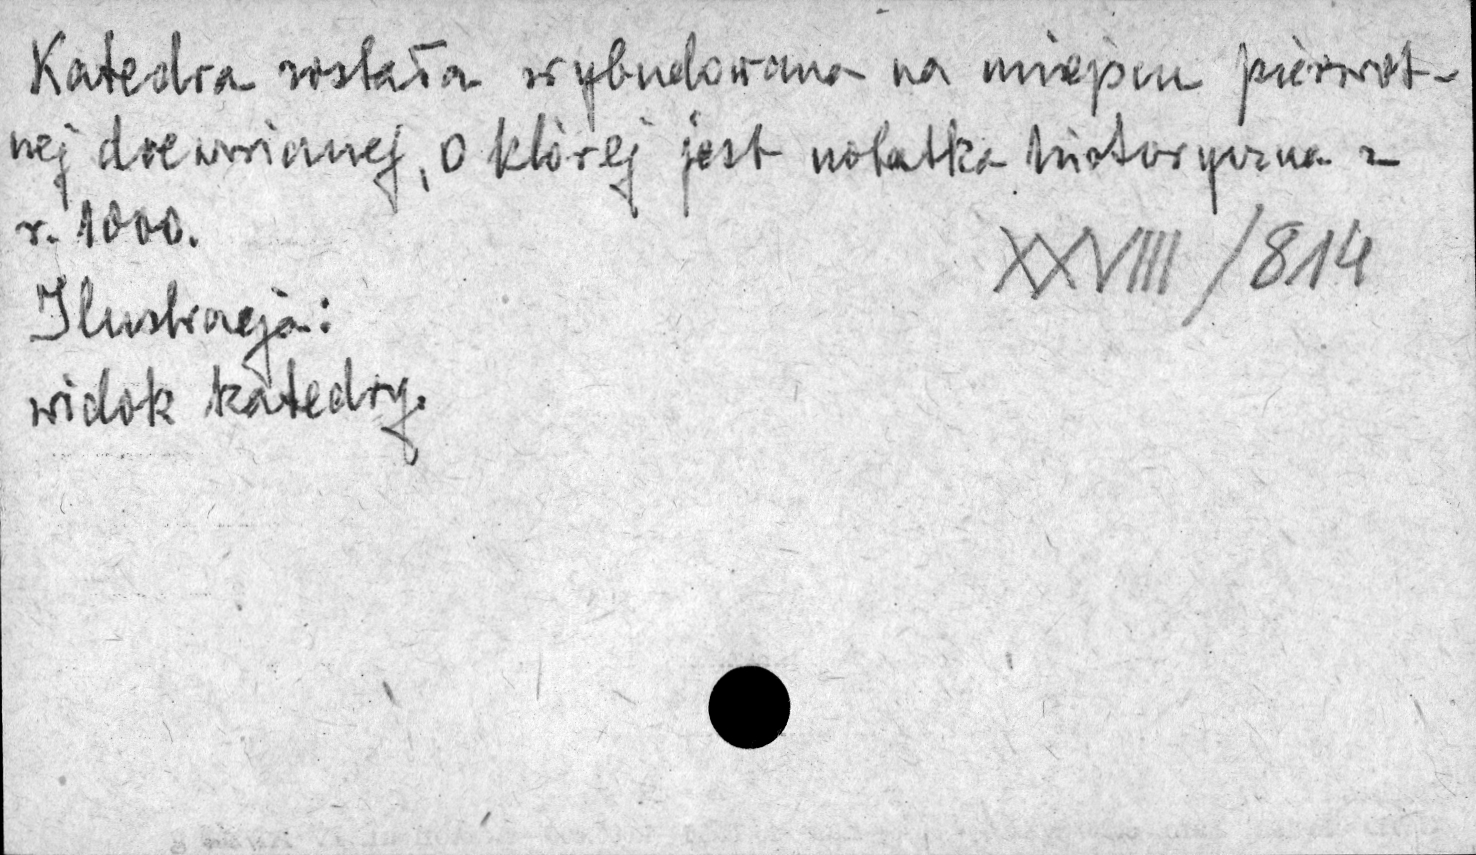 Katedra została wybudowana na miejscu pierwot-
nej drewnianej, o której jest notatka historyczna z
r. 1000.
XXVIIII / 814
Ilustracja:
widok katedry.